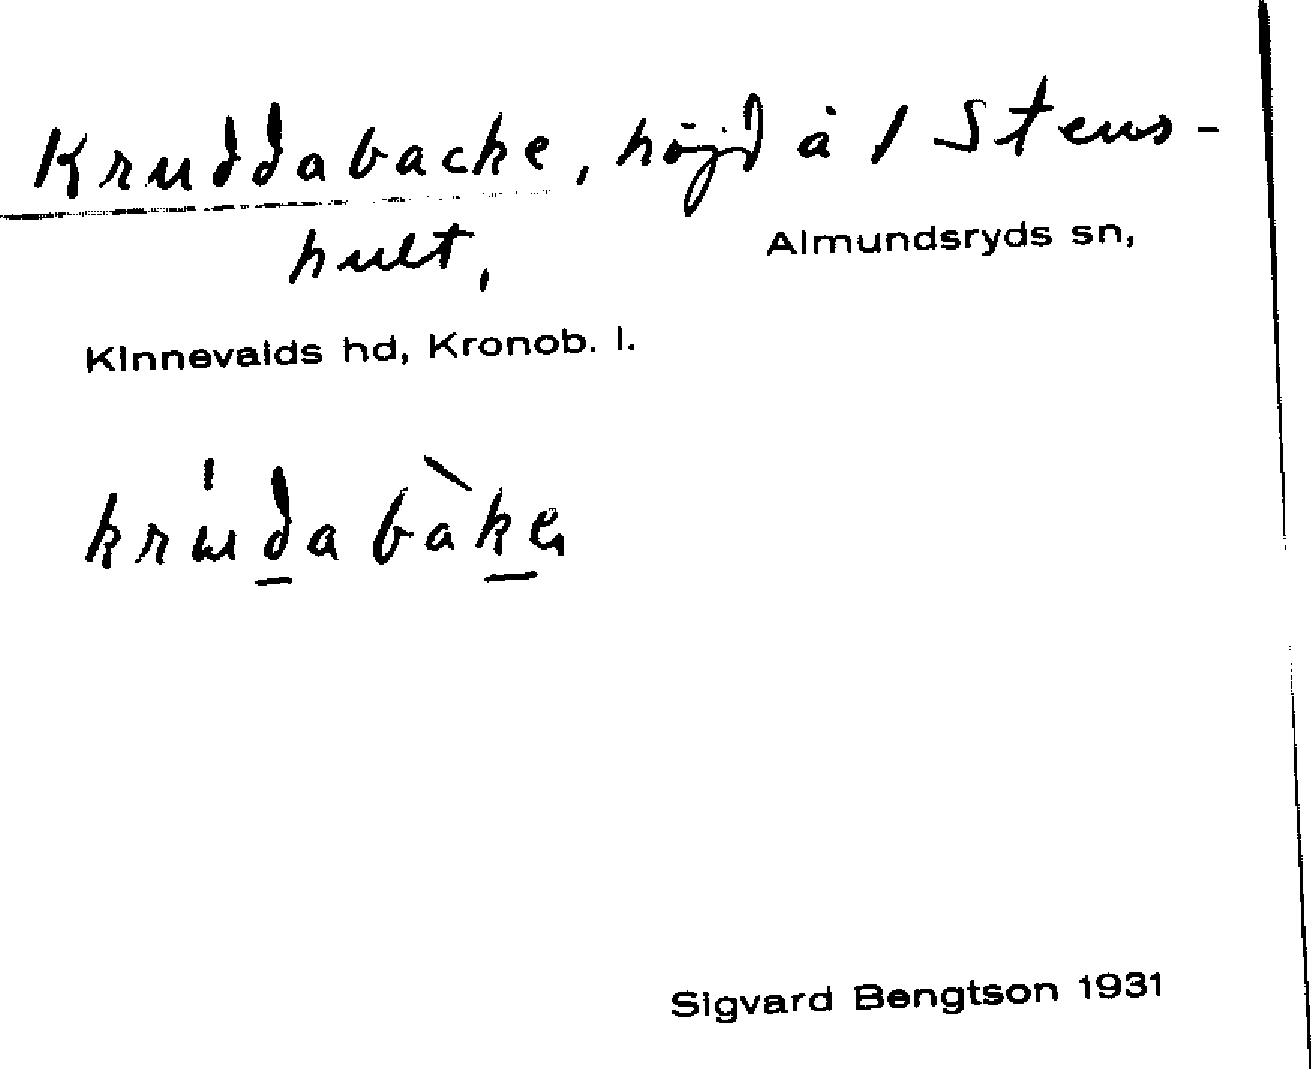 Kruddabacke, höjd å / Stens-
hult,
Almundsryds sn,
Kinnevalds hd, Kronob. l.
krudabàke
Sigvard Bengtson 1931